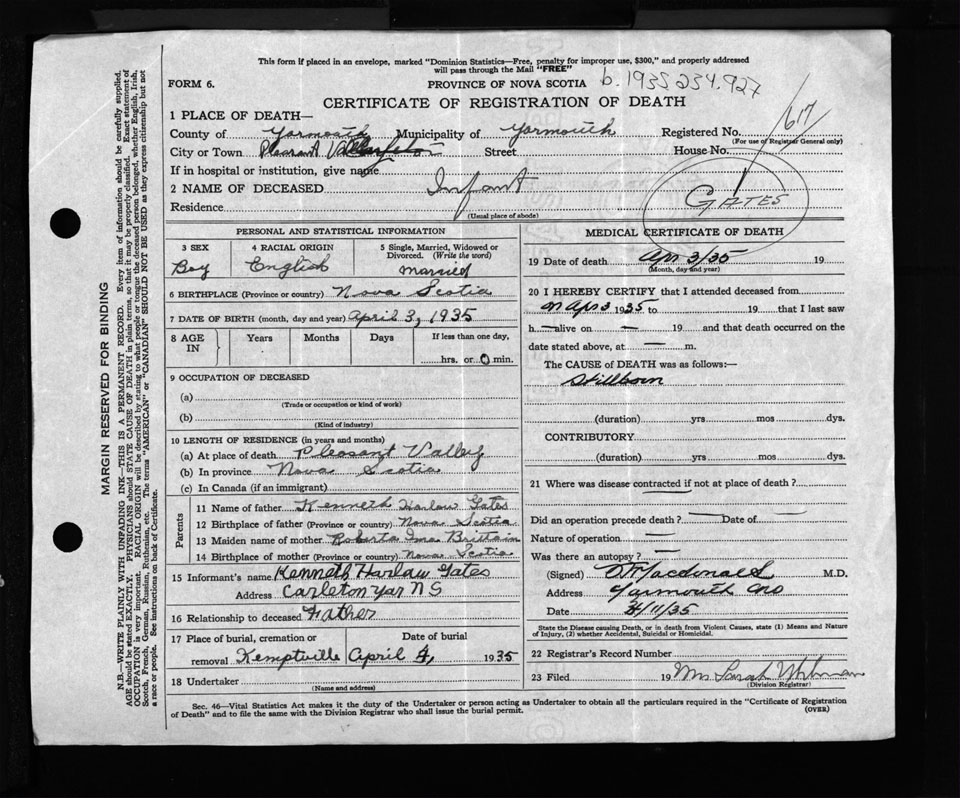 This form if placed in an envelope, marked "Dominion Statistics—Free, penalty for improper use, $300," and properly addressed
will pass through the Mail "FREE"
FORM 6.
PROVINCE OF NOVA SCOTIA b. 1935 234.927
CERTIFICATE OF REGISTRATION OF DEATH
617
1 PLACE OF DEATH—
County of Yarmouth Municipality of Yarmouth Registered No.
(For use of Registrar General only)
City or Town Pleasant Valley Street House No.
If in hospital or institution, give name
2 NAME OF DECEASED Infant GATES
Residence
(Usual place of abode)
PERSONAL AND STATISTICAL INFORMATION
3 SEX 4 RACIAL ORIGIN 5 Single, Married, Widowed or
Divorced. (Write the word)
Boy English married
6 BIRTHPLACE (Province or country) Nova Scotia
7 DATE OF BIRTH (month, day and year) April 3, 1935
8 AGE IN Years Months Days If less than one day,
hrs. or 0 min.
9 OCCUPATION OF DECEASED
(a)
(Trade or occupation or kind of work)
(b)
(Kind of industry)
10 LENGTH OF RESIDENCE (in years and months)
(a) At place of death Pleasant Valley
(b) In province Nova Scotia
(c) In Canada (if an immigrant)
Parents
11 Name of father Kenneth Harlow Gates
12 Birthplace of father (Province or country) Nova Scotia
13 Maiden name of mother Roberta Ina Brittain
14 Birthplace of mother (Province or country) Nova Scotia
15 Informant's name Kenneth Harlaw Gates
Address Carleton Yar N S
16 Relationship to deceased Father
17 Place of burial, cremation or Date of burial
removal Kemptville April 4, 1935
18 Undertaker
(Name and address)
MEDICAL CERTIFICATE OF DEATH
19 Date of death Apr 3/35 19
(Month, day and year)
20 I HEREBY CERTIFY that I attended deceased from
on Apr 3 1935 to 19 that I last saw
h — alive on — 19 and that death occurred on the
date stated above, at — m.
The CAUSE OF DEATH was as follows:—
Stillborn
(duration) yrs mos dys.
CONTRIBUTORY
(duration) yrs mos dys.
21 Where was disease contracted if not at place of death?
Did an operation precede death? — Date of —
Nature of operation —
Was there an autopsy? —
(Signed) Macdonald M.D.
Address Yarmouth NS
Date 4/11/35
State the Disease causing Death, or in death from Violent Causes, state (1) Means and Nature
of Injury, (2) whether Accidental, Suicidal or Homicidal.
22 Registrar's Record Number
23 Filed 19 Mrs Sarah
(Division Registrar)
Sec. 46—Vital Statistics Act makes it the duty of the Undertaker or person acting as Undertaker to obtain all the particulars required in the "Certificate of Registration
of Death" and to file the same with the Division Registrar who shall issue the burial permit.
(OVER)
MARGIN RESERVED FOR BINDING
N.B.—WRITE PLAINLY WITH UNFADING INK—THIS IS A PERMANENT RECORD. Every item of information should be carefully supplied.
AGE should be stated EXACTLY. PHYSICIANS should STATE CAUSE OF DEATH in plain terms, so that it may be properly classified. Exact statement of
OCCUPATION is very important. RACIAL ORIGIN will be described by stating to what people or tongue the deceased person belonged, whether English, Irish,
Scotch, French, German, Russian, Ruthenian, etc. The terms "AMERICAN" or "CANADIAN" SHOULD NOT BE USED as they express citizenship but not
a race or people. See instructions on back of Certificate.